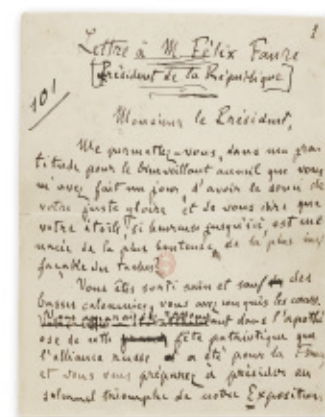 1
Lettre à M. Félix Faure
[Président de la République]
101
Monsieur le Président,
Me permettez-vous, dans ma gra-
titude pour le bienveillant accueil que vous
m'avez fait un jour, d'avoir le souci de
votre juste gloire et de vous dire que
votre étoile, si heureuse jusqu'ici, est me-
nacée de la plus honteuse, de la plus inef-
façable des taches?
Vous êtes sorti sain et sauf des
basses calomnies, vous avez conquis les cœurs.
Vous apparaissez rayonnant dans l'apothé-
ose de cette fête patriotique que
l'alliance russe a été pour la France,
et vous vous préparez à présider au
solennel triomphe de notre Exposition